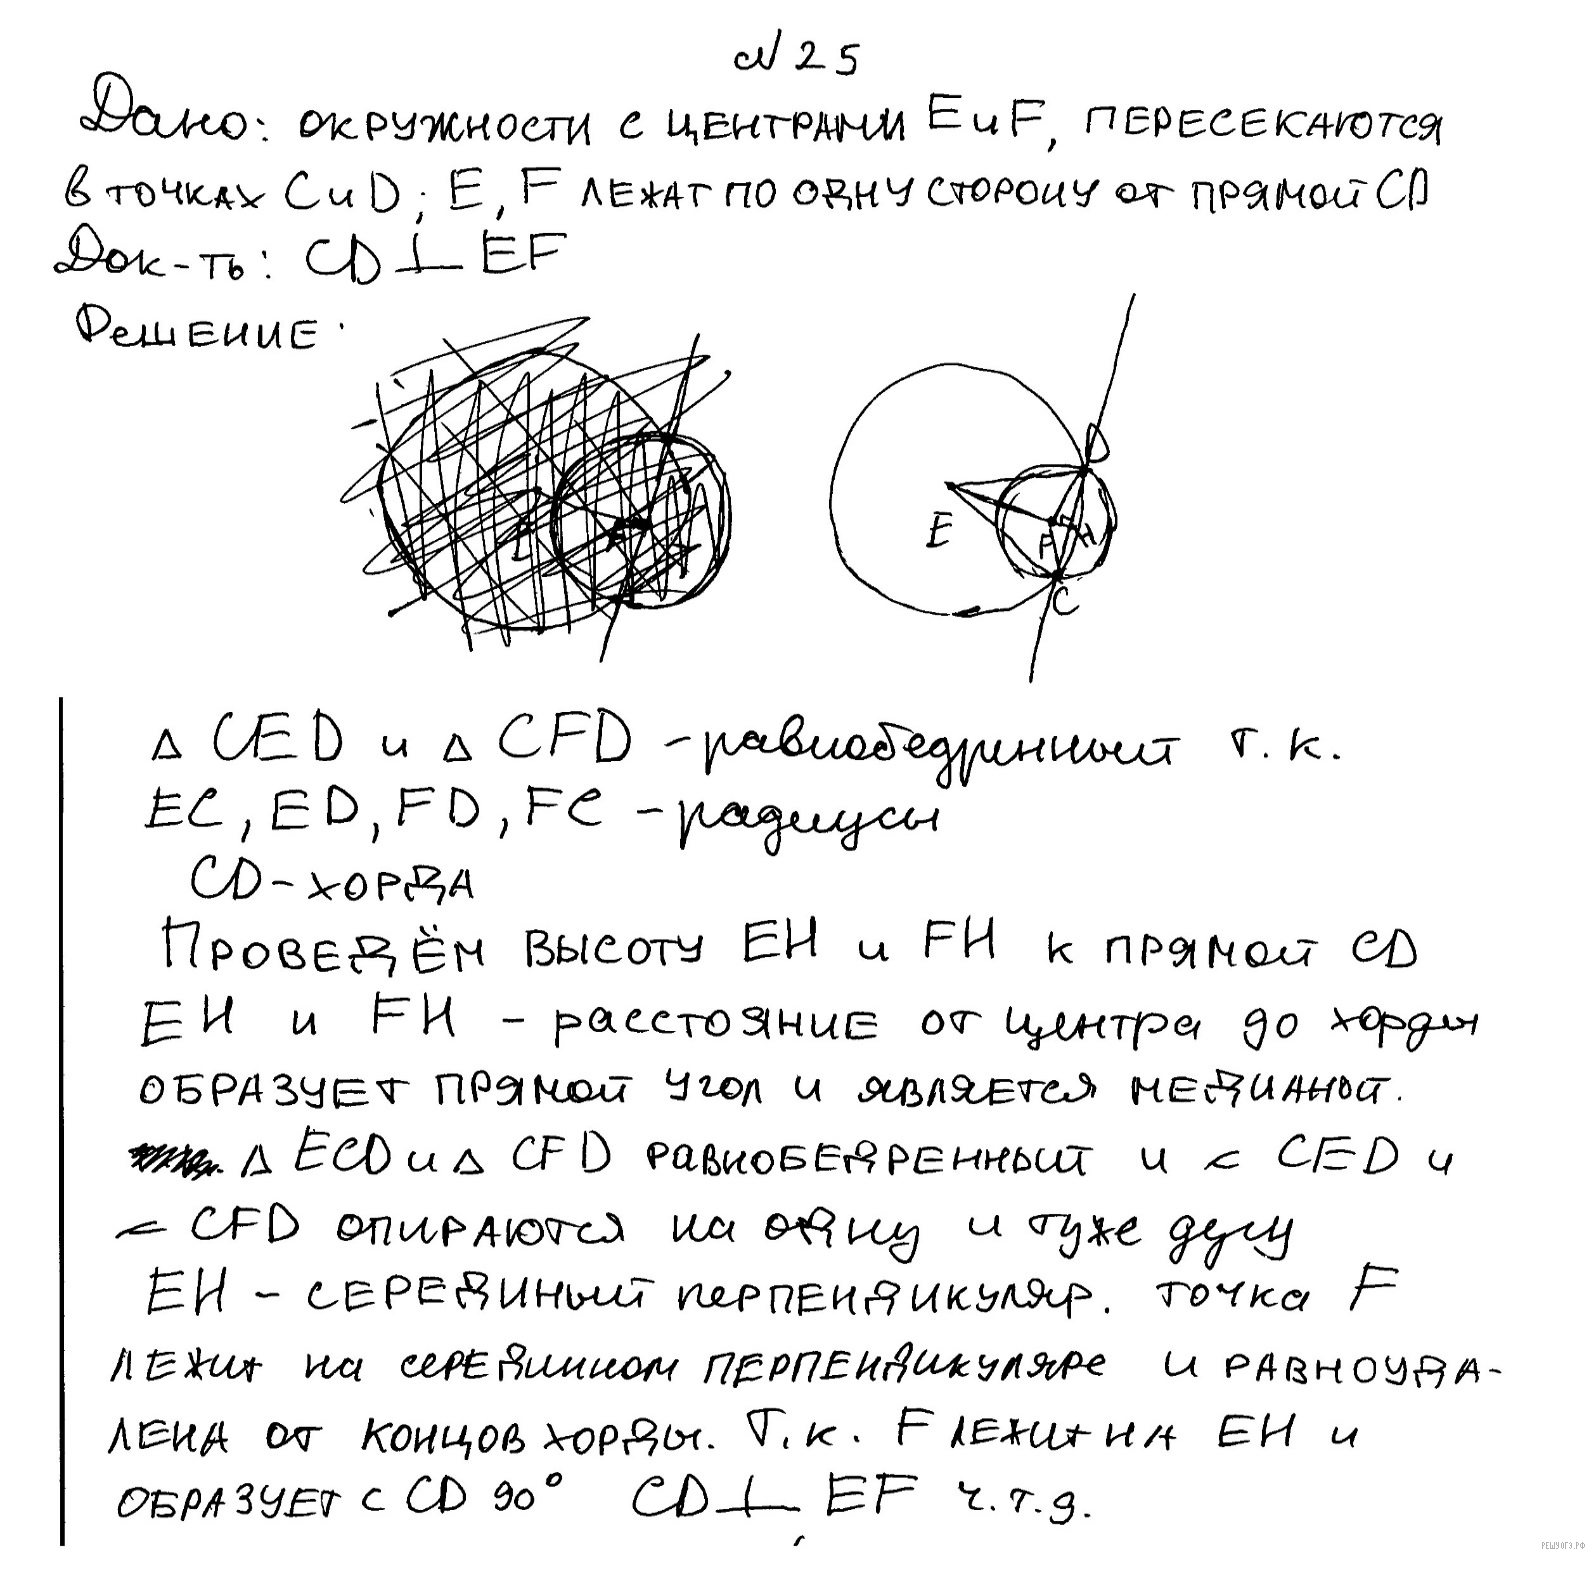 № 25
Дано: окружности с центрами Е и F, пересекаются
в точках С и D; E, F лежат по одну сторону от прямой CD
Док-ть: CD ⊥ EF
Решение:
D
E
F
H
C
Δ CED и Δ CFD - равнобедринный т.к.
EC, ED, FD, FC - радиусы
CD - хорда
Проведём высоту EH и FH к прямой CD
EH и FH - расстояние от центра до хорды
образует прямой угол и является медианой.
Δ ECD и Δ CFD равнобедренный и < CED и
< CFD опираются на одну и туже дугу
EH - серединый перпендикуляр. точка F
лежит на серединном перпендикуляре и равноуда-
лена от концов хорды. Т.к. F лежит на EH и
образует с CD 90° CD ⊥ EF ч.т.д.
РЕШУОГЭ.РФ